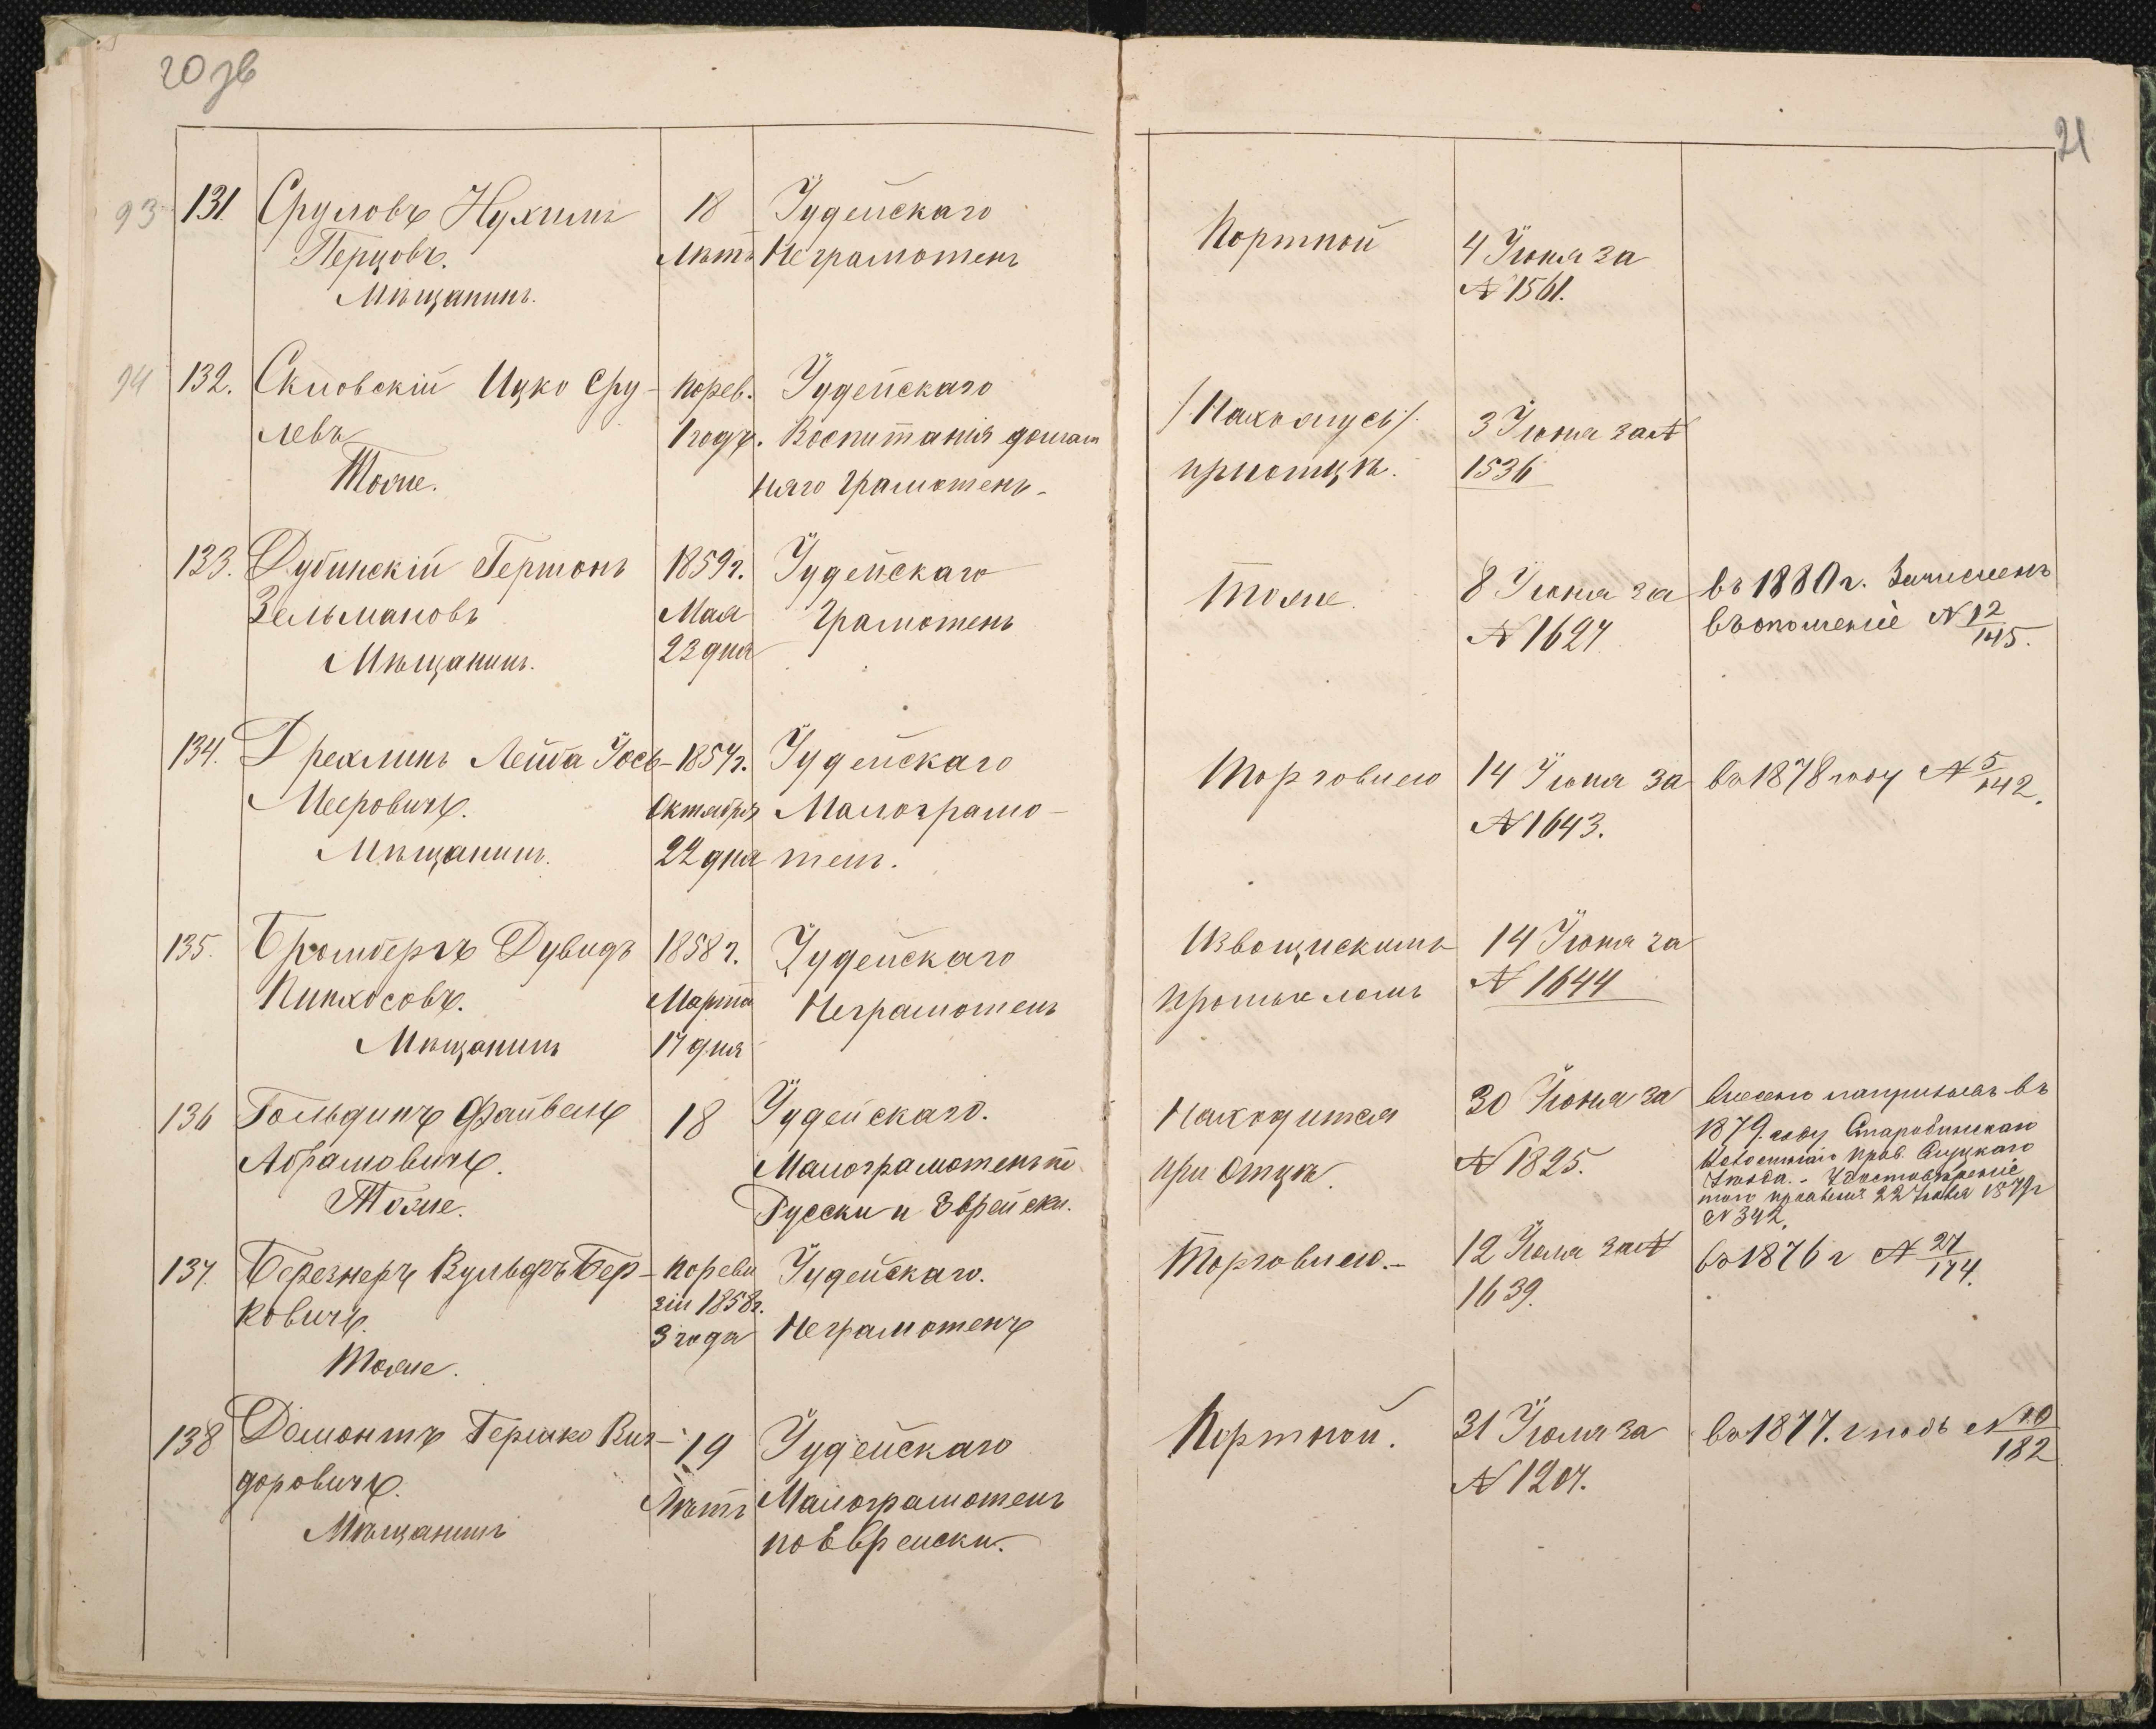 20 зв
21
93 131. Сруловъ Нухимъ 18 Іудейскаго Портной 4 Іюня за
Перцовъ. Лѣтъ Неграмотенъ № 1561.
Мѣщанинъ.
94 132. Скловскій Ицко Сру- порев. Іудейскаго /Нахожусь/ 3 Іюня за №
левъ 1 годъ. Воспитанія домаш приотцѣ. 1536
Тоже. няго грамотенъ.
133. Дубинскій Гершонъ 1859 г. Іудейскаго Тоже. 8 Іюня за въ 1880 г. Зачисленъ
Зельмановъ Мая Грамотенъ № 1627 въ ополченіе № 12/145.
Мѣщанинъ. 23 дня
134. Дрехлинъ Лейба Іось- 1857 г. Іудейскаго Торговлею 14 Іюня за въ 1878 году № 5/142.
Мееровичъ. Октября Малограмо- № 1643.
Мѣщанинъ. 22 дня тенъ.
135. Бромбергъ Дувидъ 1858 г. Іудейскаго Извощискимъ 14 Іюня за
Пинхосовъ. Марта Неграмотенъ промысломъ № 1644
Мѣщанинъ 17 дня
136 Гольдинъ Файвель 18 Іудейскаго. Находится 30 Іюня за
Абрамовичъ. Малограмотенъ по при Отцѣ. № 1825.
Тоже. Русски и Еврейски.
въ
1879 году Старобинскаго
прав. Слуцкаго
Уѣзда. - Удостовѣреніе
того правленія 22 1879 г
№ 342.
137. Березнеръ Вульфъ Бер- пореви Іудейскаго. Торговлею.- 12 Іюля за № въ 1876 г № 27/174.
ковичъ. зіи 1858 г. 1639.
3 года Неграмотенъ
Тоже.
138 Домонтъ Гершко Виг- 19 Іудейскаго Портной. 31 Іюля за въ 1877. году № 10/182
доровичъ. Лѣтъ Малограмотенъ № 1207.
Мѣщанинъ поЕврейски.